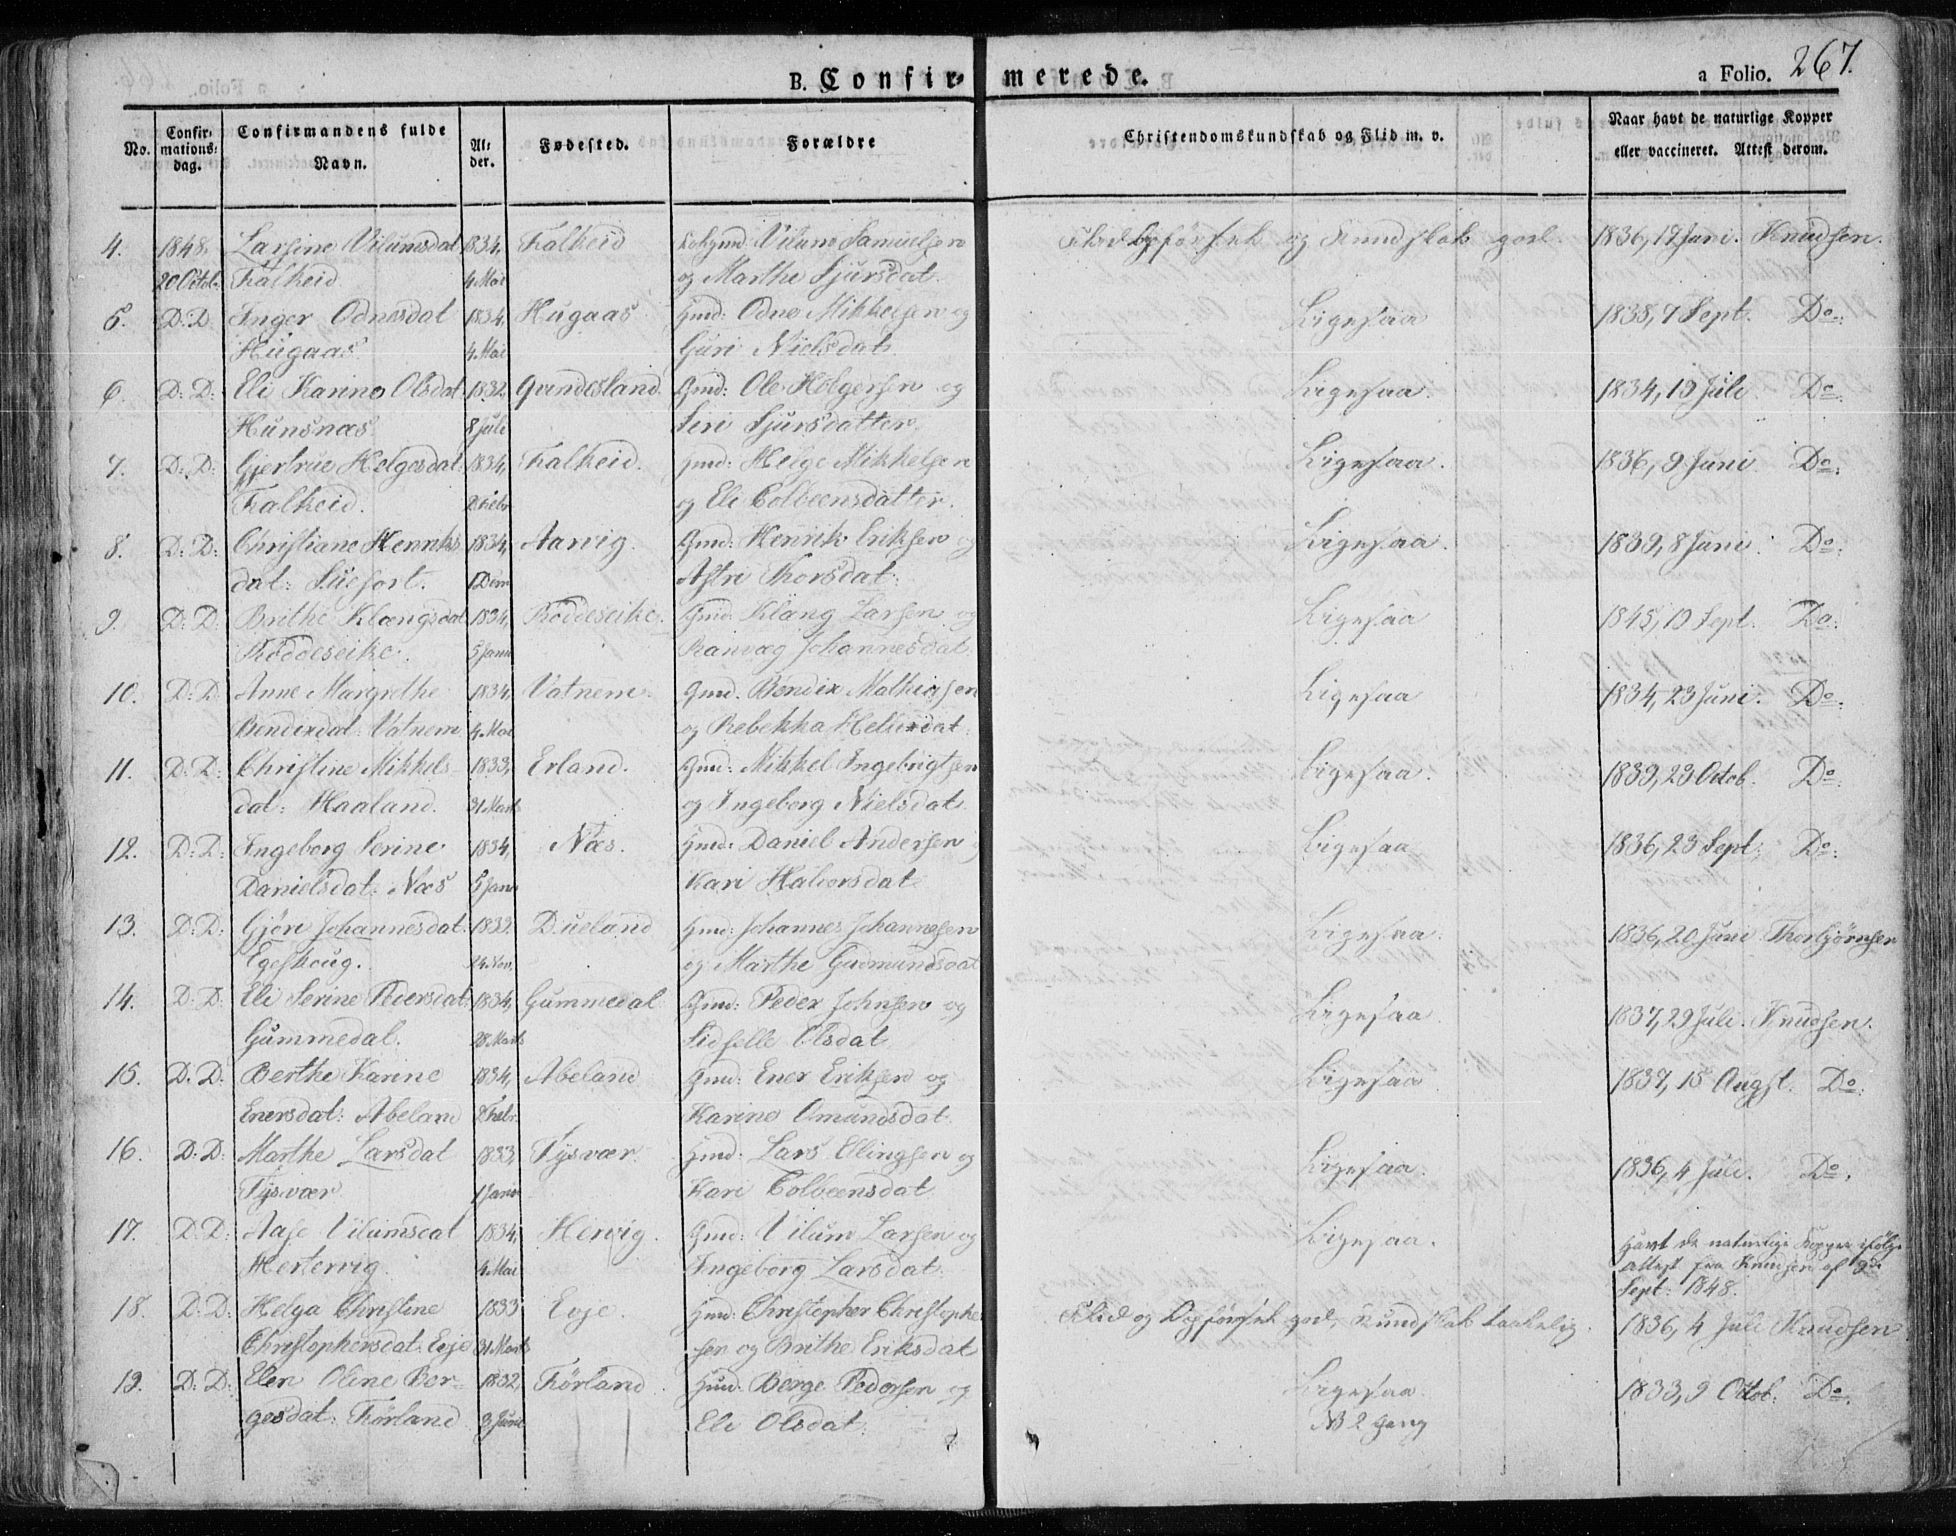 B. Confirmerede.
a Folio. 267.
No. Confirmations-dag. Confirmandens fulde Navn. Alder. Fødested. Forældre Christendomskundskab og Flid m. v. Naar havt de naturlige Kopper eller vaccineret. Attest derom.
4. 1848 Larsine Vilumsdat 1834, Falkeid Vilum Samuelsen Flid Opførsel og Kundskab god. 1836, Juni. Knudsen.
20 Octob. Falkeid 4 Mai og Marthe Sjursdat
5. D: D Inger Odnesdat 1834, Hugaas Gmd: Odne Mikkelsen og Ligesaa 1838, 7 Sept. Do
Hugaas 4 Mai Guri Nielsdat
6. D: D: Eli Karine Olsdat 1832, Gundesland Gmd: Ole Holgersen og Ligesaa. 1834, 19 Juli Do
Hunsnæs 8 Juli Siri Sjursdatter
7. D: D: Gjertrue Helgesdat 1834, Falkeid. Gmd: Helge Mikkelsen Ligesaa. 1836, 9 Juni Do
Falkeid. Febr og Eli Colbeensdatter.
8. D: D: Christiane Henriks 1834, Aarvig. Gmd: Henrik Eriksen og Ligesaa. 1839, 8 Juni Do
dat: 1 Dem Astri Thorsdat:
9. D: D: Brithe Klængsdat 1834, Røddeseike. Gmd: Klæng Larsen og Ligesaa 1845, 10 Sept. Do
Røddeseike. 5 Janu Ranvæg Johannesdat
10. D: D Anne Margrethe 1834, Vatnem. Gmd. Bendix Mathiasen Ligesaa 1834, 23 Juni. Do
Bendixdat: Vatnem 4 Mai og Rebekka
11. D: D: Christine Mikkels- 1833, Erland. Gmd: Mikkel Ingebrigtsen Ligesaa. 1839, 23 Octob. Do
dat: Haaland. 31 Marts og Ingeborg Nielsdat
12. D: D: Ingeborg Serine 1834, Næs. Gmd: Daniel Andersen Ligesaa 1836, 23 Sept. Do
Danielsdat: Næs 5 Janu Kari Halvorsdat
13. D: D: Gjøri Johannesdat: 1833. Dueland Gmd: Johannes Johannesen Ligesaa. 1836, 20 Juni Thorbjørnsen
Egeskoug. 24 Nov. og Marthe Gudmundsdat
14. D: D: Eli Serine Pedersdat 1834, Gummedal Gmd: Peder Johnsen og Ligesaa 1837, 29 Juli. Knudsen.
Gummedal. 28 Marts Sidselle Olsdat
15. D. D: Berthe Karine 1834, Abeland Gmd: Ener Eriksen og Ligesaa 1837, 15 Augst. Do
Enersdat: Abeland Febr. Karine Omundsdat
16. D: D: Marthe Larsdat 1833, Tysvær Gmd: Lars Ellingsen og Ligesaa. 1836, 4 Juli. Do.
Tysvær 1 Janu Kari Colbeensdat
17. D: D: Aase Vilumsdat 1834, Hervig. Gmd: Vilum Larsen og Ligesaa. Havt de naturlige Kopper ifølge
Hertervig 4 Mai Ingeborg Larsdat attest fra Knudsen af 9de
Sept: 1848.
18. D: D: Helga Christine 1833 Evje Gmd: Christopher Christophe Flid og Opførsel god, Kundskab taalelig. 1836, 4 Juli Knudsen
Christophersdat: Evje 31 Marts sen og Brithe Eriksdat
19. D: D: Elen Oline Ber- 1832, Førland Børge Pedersen og Ligesaa. 1833, 9 Octob. Do
gesdat: Førland 3 Juni Eli Olsdat. NB 2 Gang